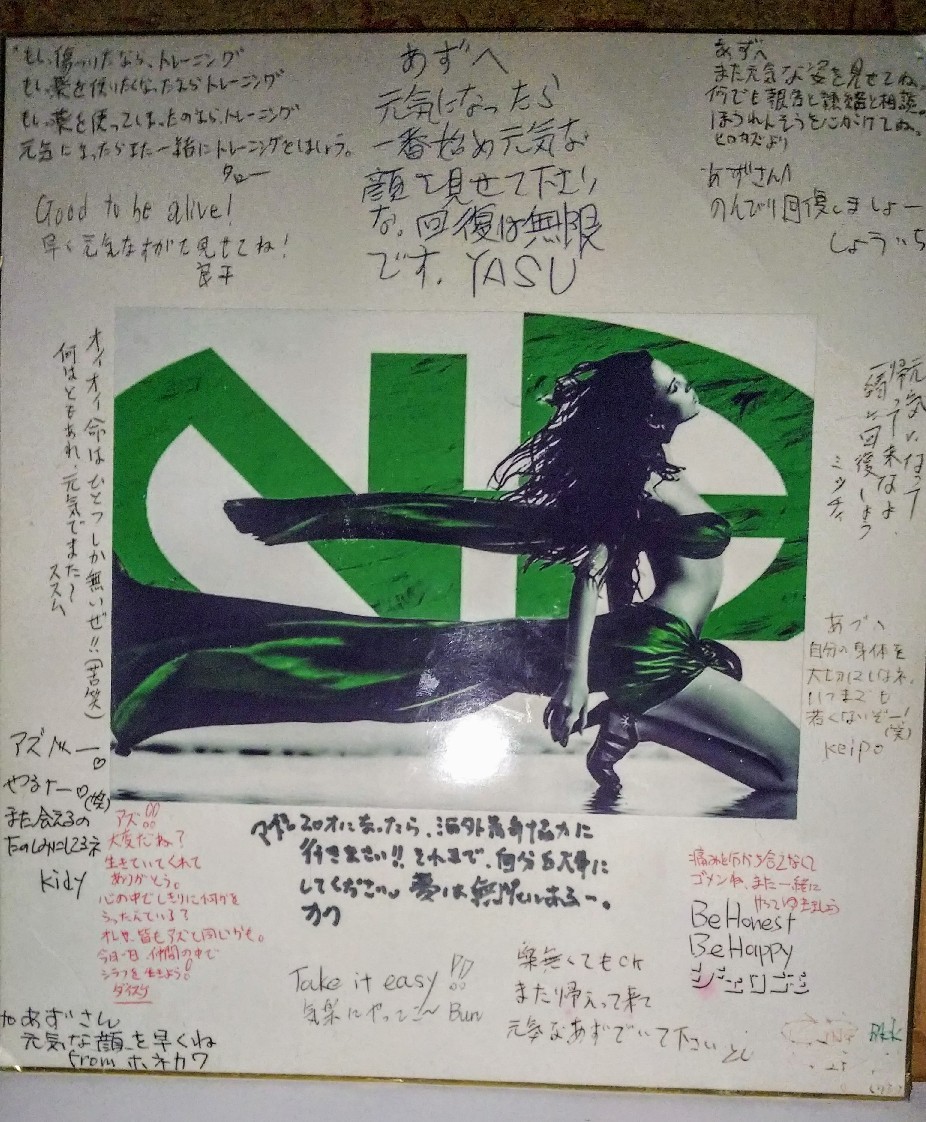 もし傷ついたなら、トレーニング
もし薬を使いたくなったならトレーニング
もし薬を使ってしまったのなら、トレーニング
元気になったらまた一緒にトレーニングをしましょう。
タロー
Good to be alive!
早く元気なすがた見せてね!
良平
あずへ
元気になったら
一番始め元気な
顔を見せて下さい
な。回復は無限
です。YASU
あずへ
また元気な姿を見せてね。
何でも報告と連絡と相談。
ほうれんそうを心がけてね。
ヒロカズより
あずさんへ
のんびり回復しましょー
しょういち
オイオイ命はひとつしか無いぜ!!(苦笑)
何はともあれ、元気でまた〜
ススム
NA
元気になって
帰って来なよ、
一緒に回復しよう
ミッチィ
あづへ
自分の身体を
大切にしなネ、
いつまでも
若くないぞー!
(笑)
keipo
アズ
やるなー♡(笑)
また会えるの
たのしみにしてるネ
kidy
アズ!!
大変だね?
生きていてくれて
ありがとう。
心の中でしきりに何かを
うったえている?
オレも、皆もアズと同じかも。
今日一日仲間の中で
シラフを生きよう!
ダイスケ
になったら、海外
行きましょう!! それまで、自分を大事に
してください。夢は無限にあるー。
カツ
痛みを分かち合えなくて
ゴメンね、また一緒に
やってゆきましょう
Be Honest
Be Happy
Take it easy!!
気楽にやってこ〜 Bun
薬無くてもOK
また帰えって来て
元気なあずでいて下さい とし
to あずさん
元気な顔を早くね
from ホネカワ